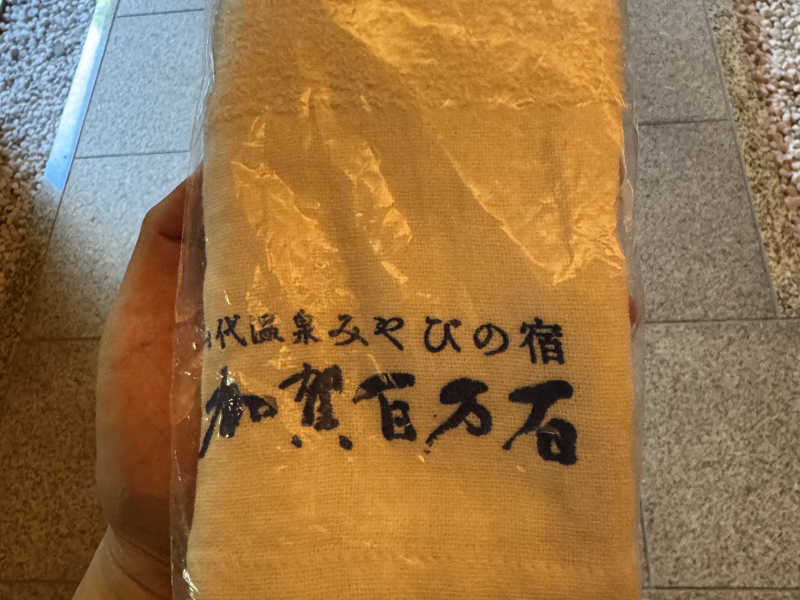 山代温泉みやびの宿
加賀百万石